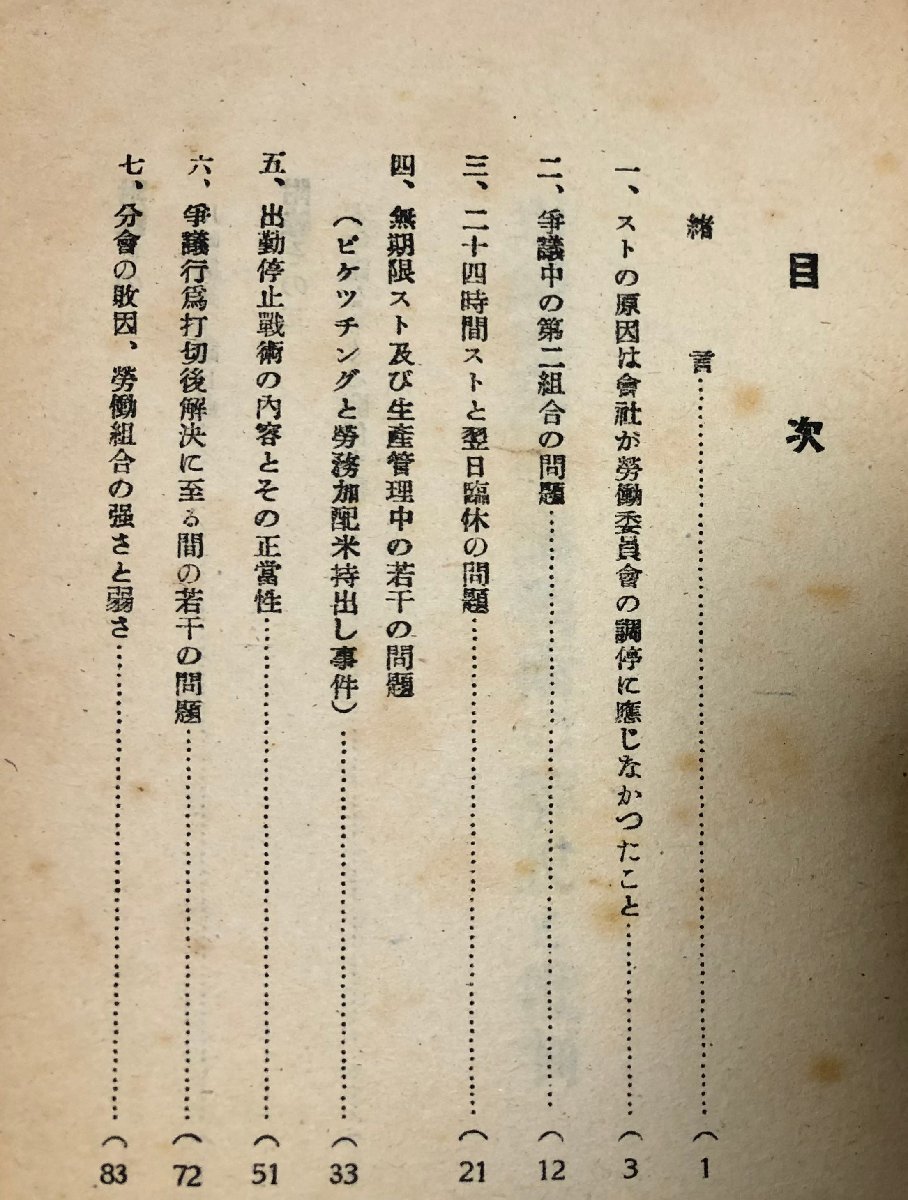 目次
緒言……………………(1
一、ストの原因は會社が勞働委員會の調停に應じなかつたこと……………………(3
二、爭議中の第二組合の問題……………………(12
三、二十四時間ストと翌日臨休の問題……………………(21
四、無期限スト及び生產管理中の若干の問題
（ピケツチングと勞務加配米持出し事件）……………………(33
五、出勤停止戰術の內容とその正當性……………………(51
六、爭議行爲打切後解決に至る間の若干の問題……………………(72
七、分會の敗因、勞働組合の强さと弱さ……………………(83